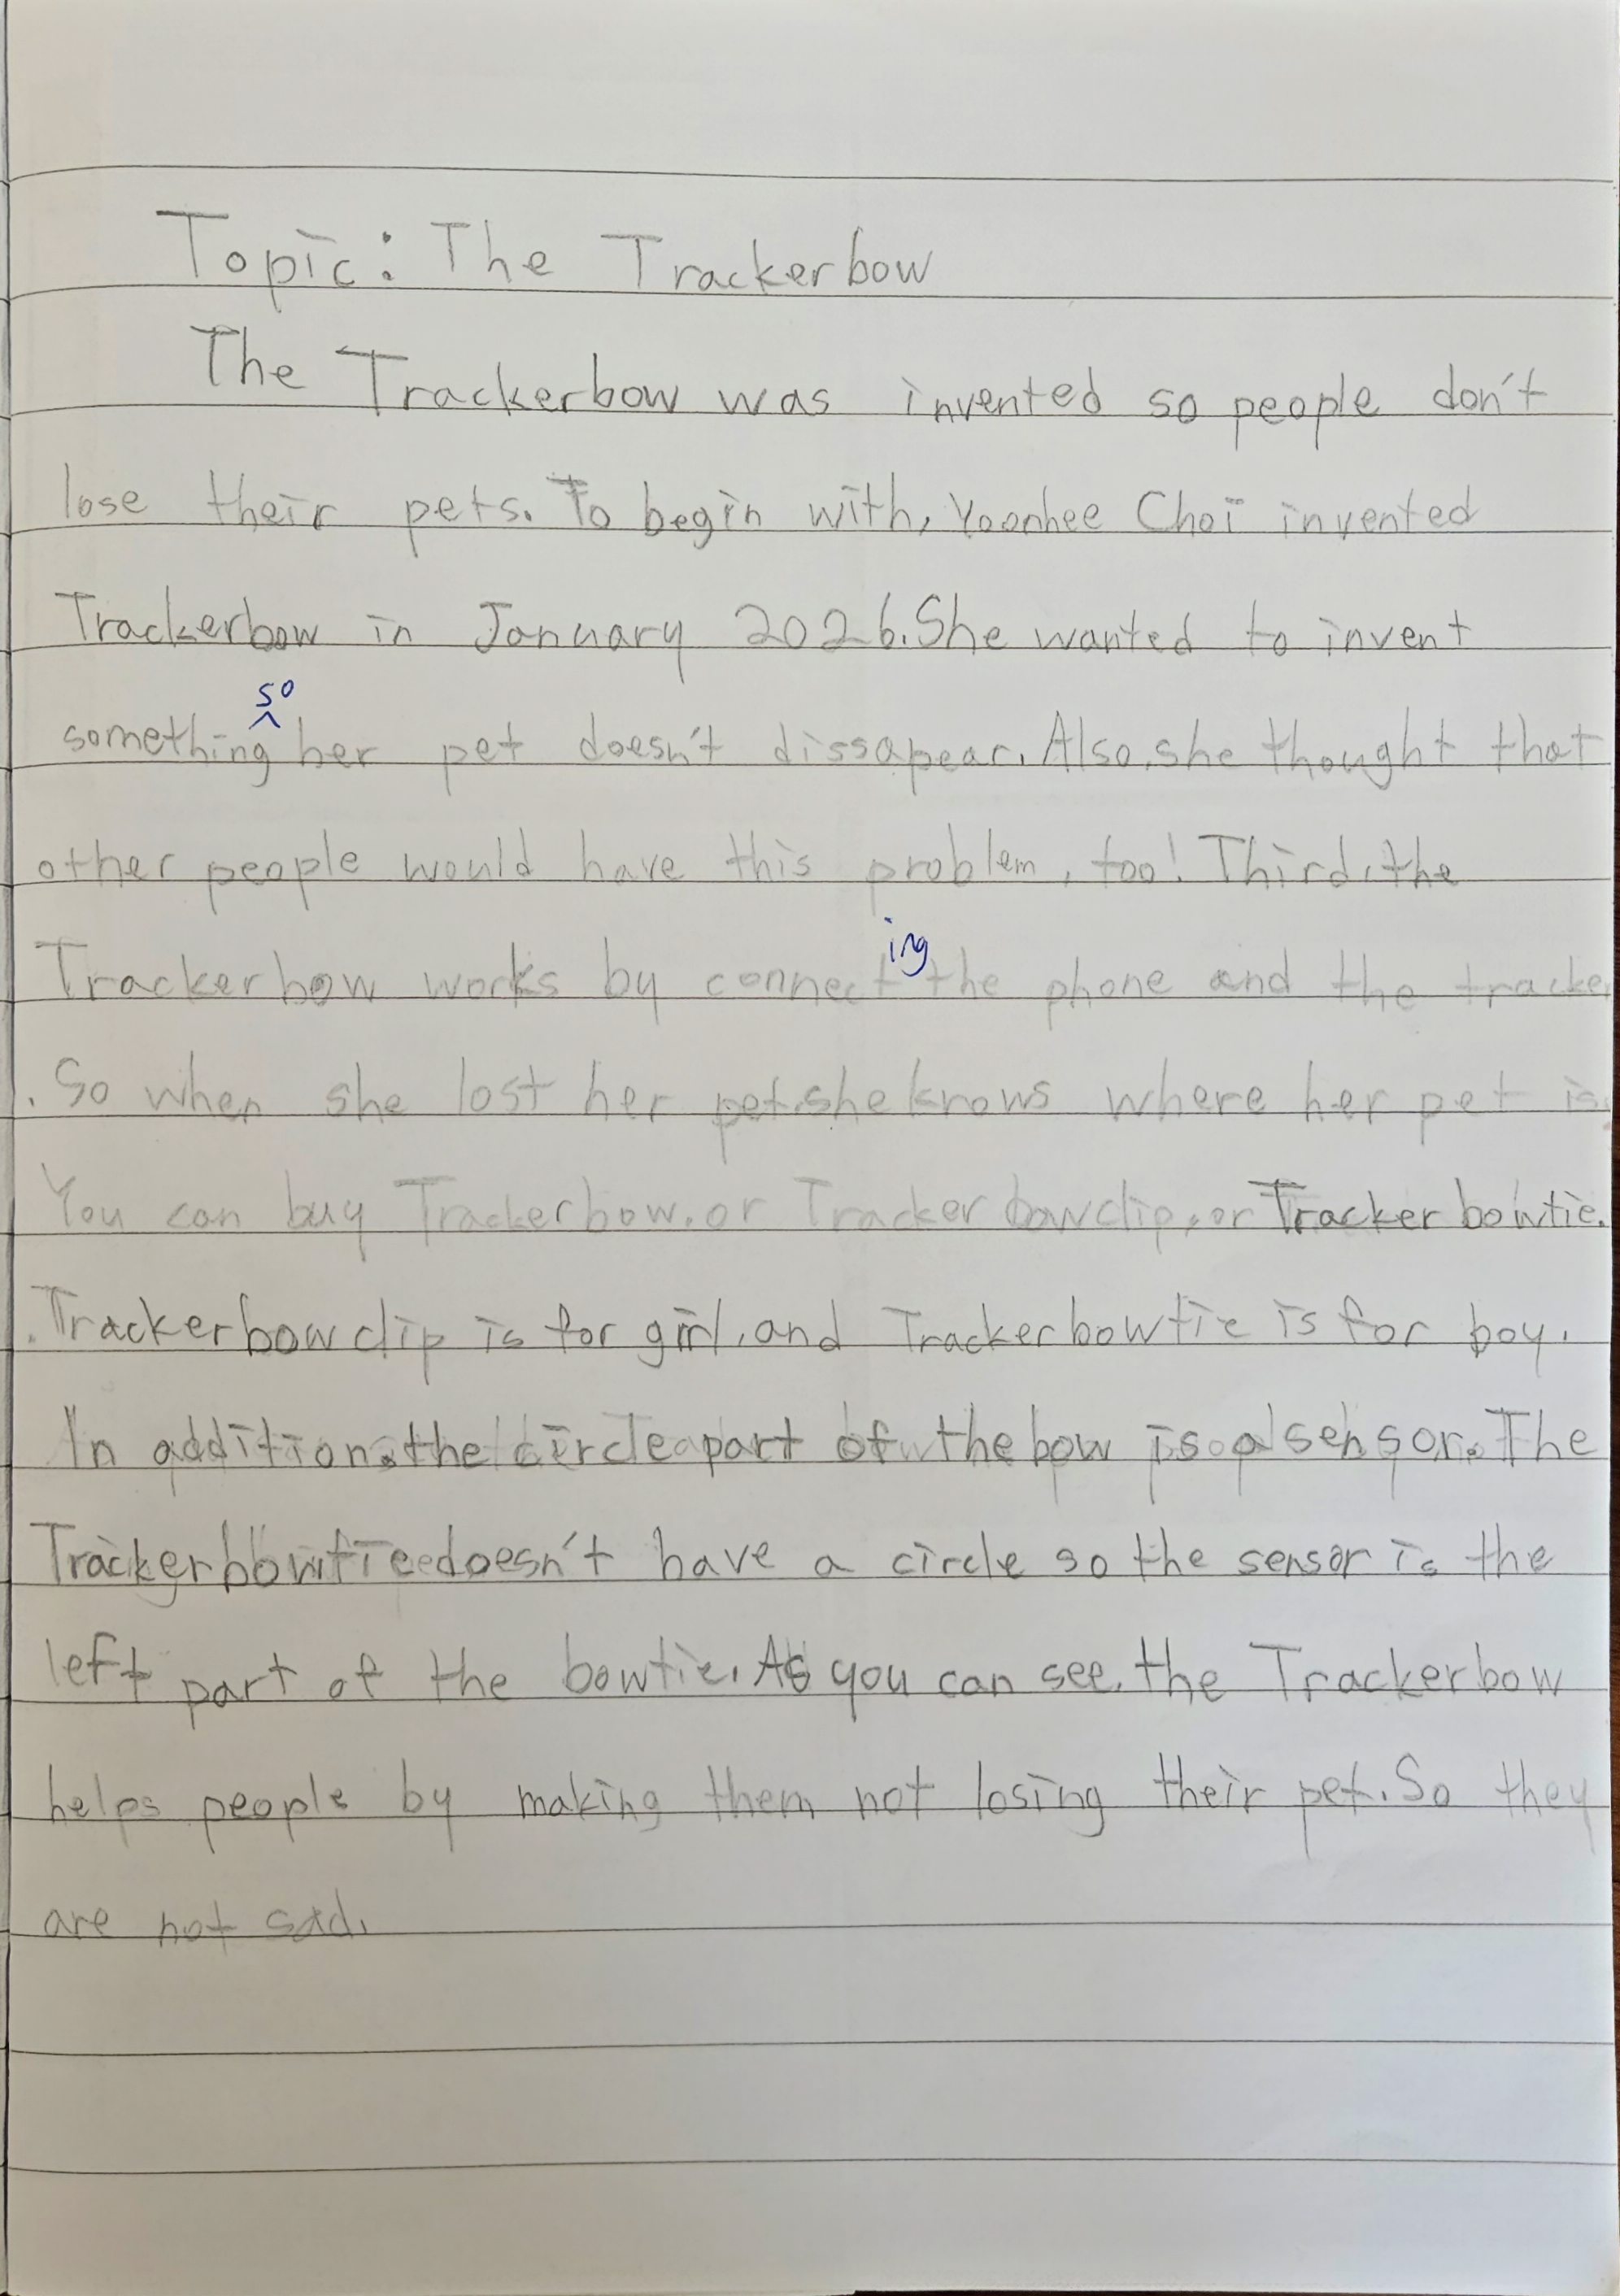 Topic: The Trackerbow
The Trackerbow was invented so people don't
lose their pets. To begin with, Yoonhee Choi invented
Trackerbow in January 2026. She wanted to invent
something so her pet doesn't dissapear. Also, she thought that
other people would have this problem, too! Third, the
Trackerbow works by connecting the phone and the tracker
. So when she lost her pet, she knows where her pet is.
You can buy Trackerbow, or Tracker bowclip, or Tracker bowtie.
Trackerbowclip is for girl, and Trackerbowtie is for boy.
In addition, the circle part of the bow is a sensor. The
Trackerbowtie doesn't have a circle so the sensor is the
left part of the bowtie. As you can see, the Trackerbow
helps people by making them not losing their pet. So they
are not sad.